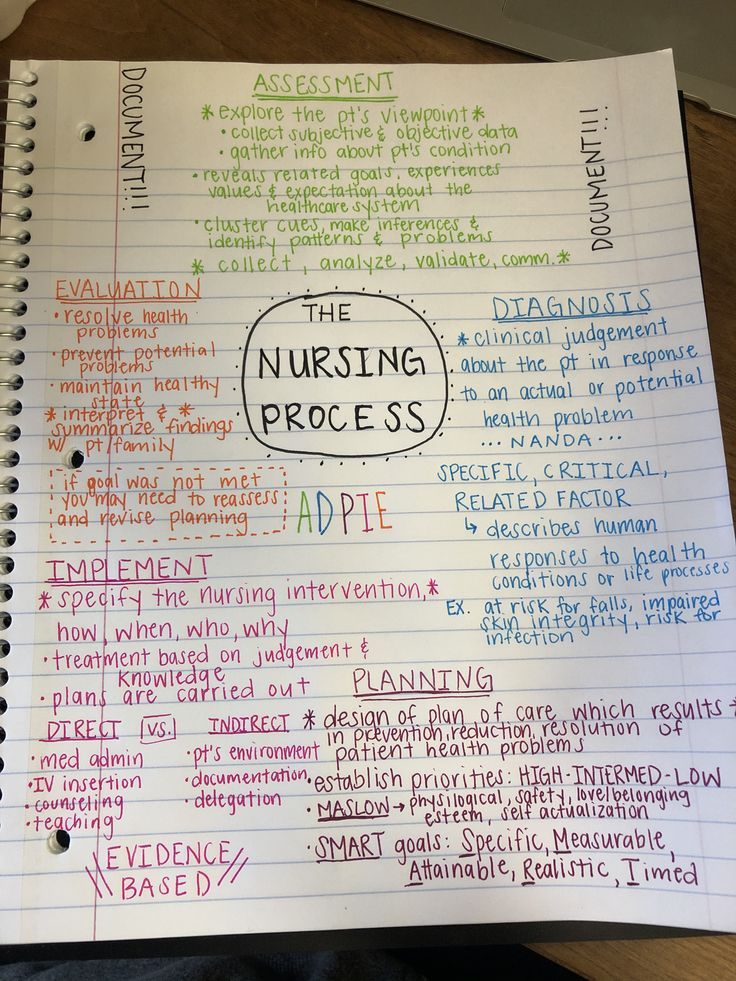 DOCUMENT!!!
ASSESSMENT
* explore the pt's viewpoint *
• collect subjective & objective data
• gather info about pt's condition
• reveals related goals, experiences
values & expectation about the
healthcare system
• cluster cues, make inferences &
identify patterns & problems
* collect, analyze, validate, comm. *
DOCUMENT!!!
EVALUATION
• resolve health
problems
• prevent potential
problems
• maintain healthy
state
* interpret & *
summarize findings
w/ pt/family
if goal was not met
you may need to reassess
and revise planning
THE
NURSING
PROCESS
ADPIE
DIAGNOSIS
* clinical judgement
about the pt in response
to an actual or potential
health problem
... NANDA ...
SPECIFIC, CRITICAL,
RELATED FACTOR
↳ describes human
responses to health
conditions or life processes
EX. at risk for falls, impaired
skin integrity, risk for
infection
IMPLEMENT
* specify the nursing intervention, *
how, when, who, why
• treatment based on judgement &
knowledge
• plans are carried out
DIRECT VS. INDIRECT
• med admin
• IV insertion
• counseling
• teaching
• pt's environment
• documentation
• delegation
\\ EVIDENCE //
BASED
PLANNING
* design of plan of care which results *
in prevention, reduction, resolution of
patient health problems
• establish priorities: HIGH-INTERMED-LOW
• MASLOW → physilogical, safety, love/belonging
esteem, self actualization
• SMART goals: Specific, Measurable,
Attainable, Realistic, Timed